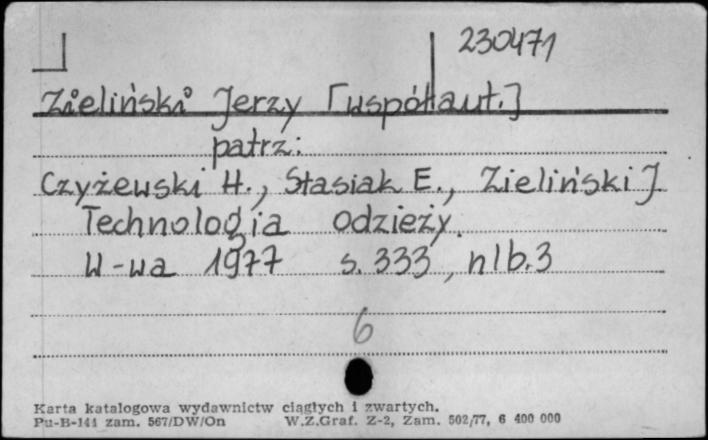 230471
Zieliński Jerzy [współaut.]
patrz:
Czyżewski H., Stasiak E., Zieliński J.
Technologia odzieży.
W-wa 1977 s. 333, nlb. 3
6
Karta katalogowa wydawnictw ciągłych i zwartych.
Pu-B-141 zam. 567/DW/On W.Z.Graf. Z-2, Zam. 502/77, 6 400 000